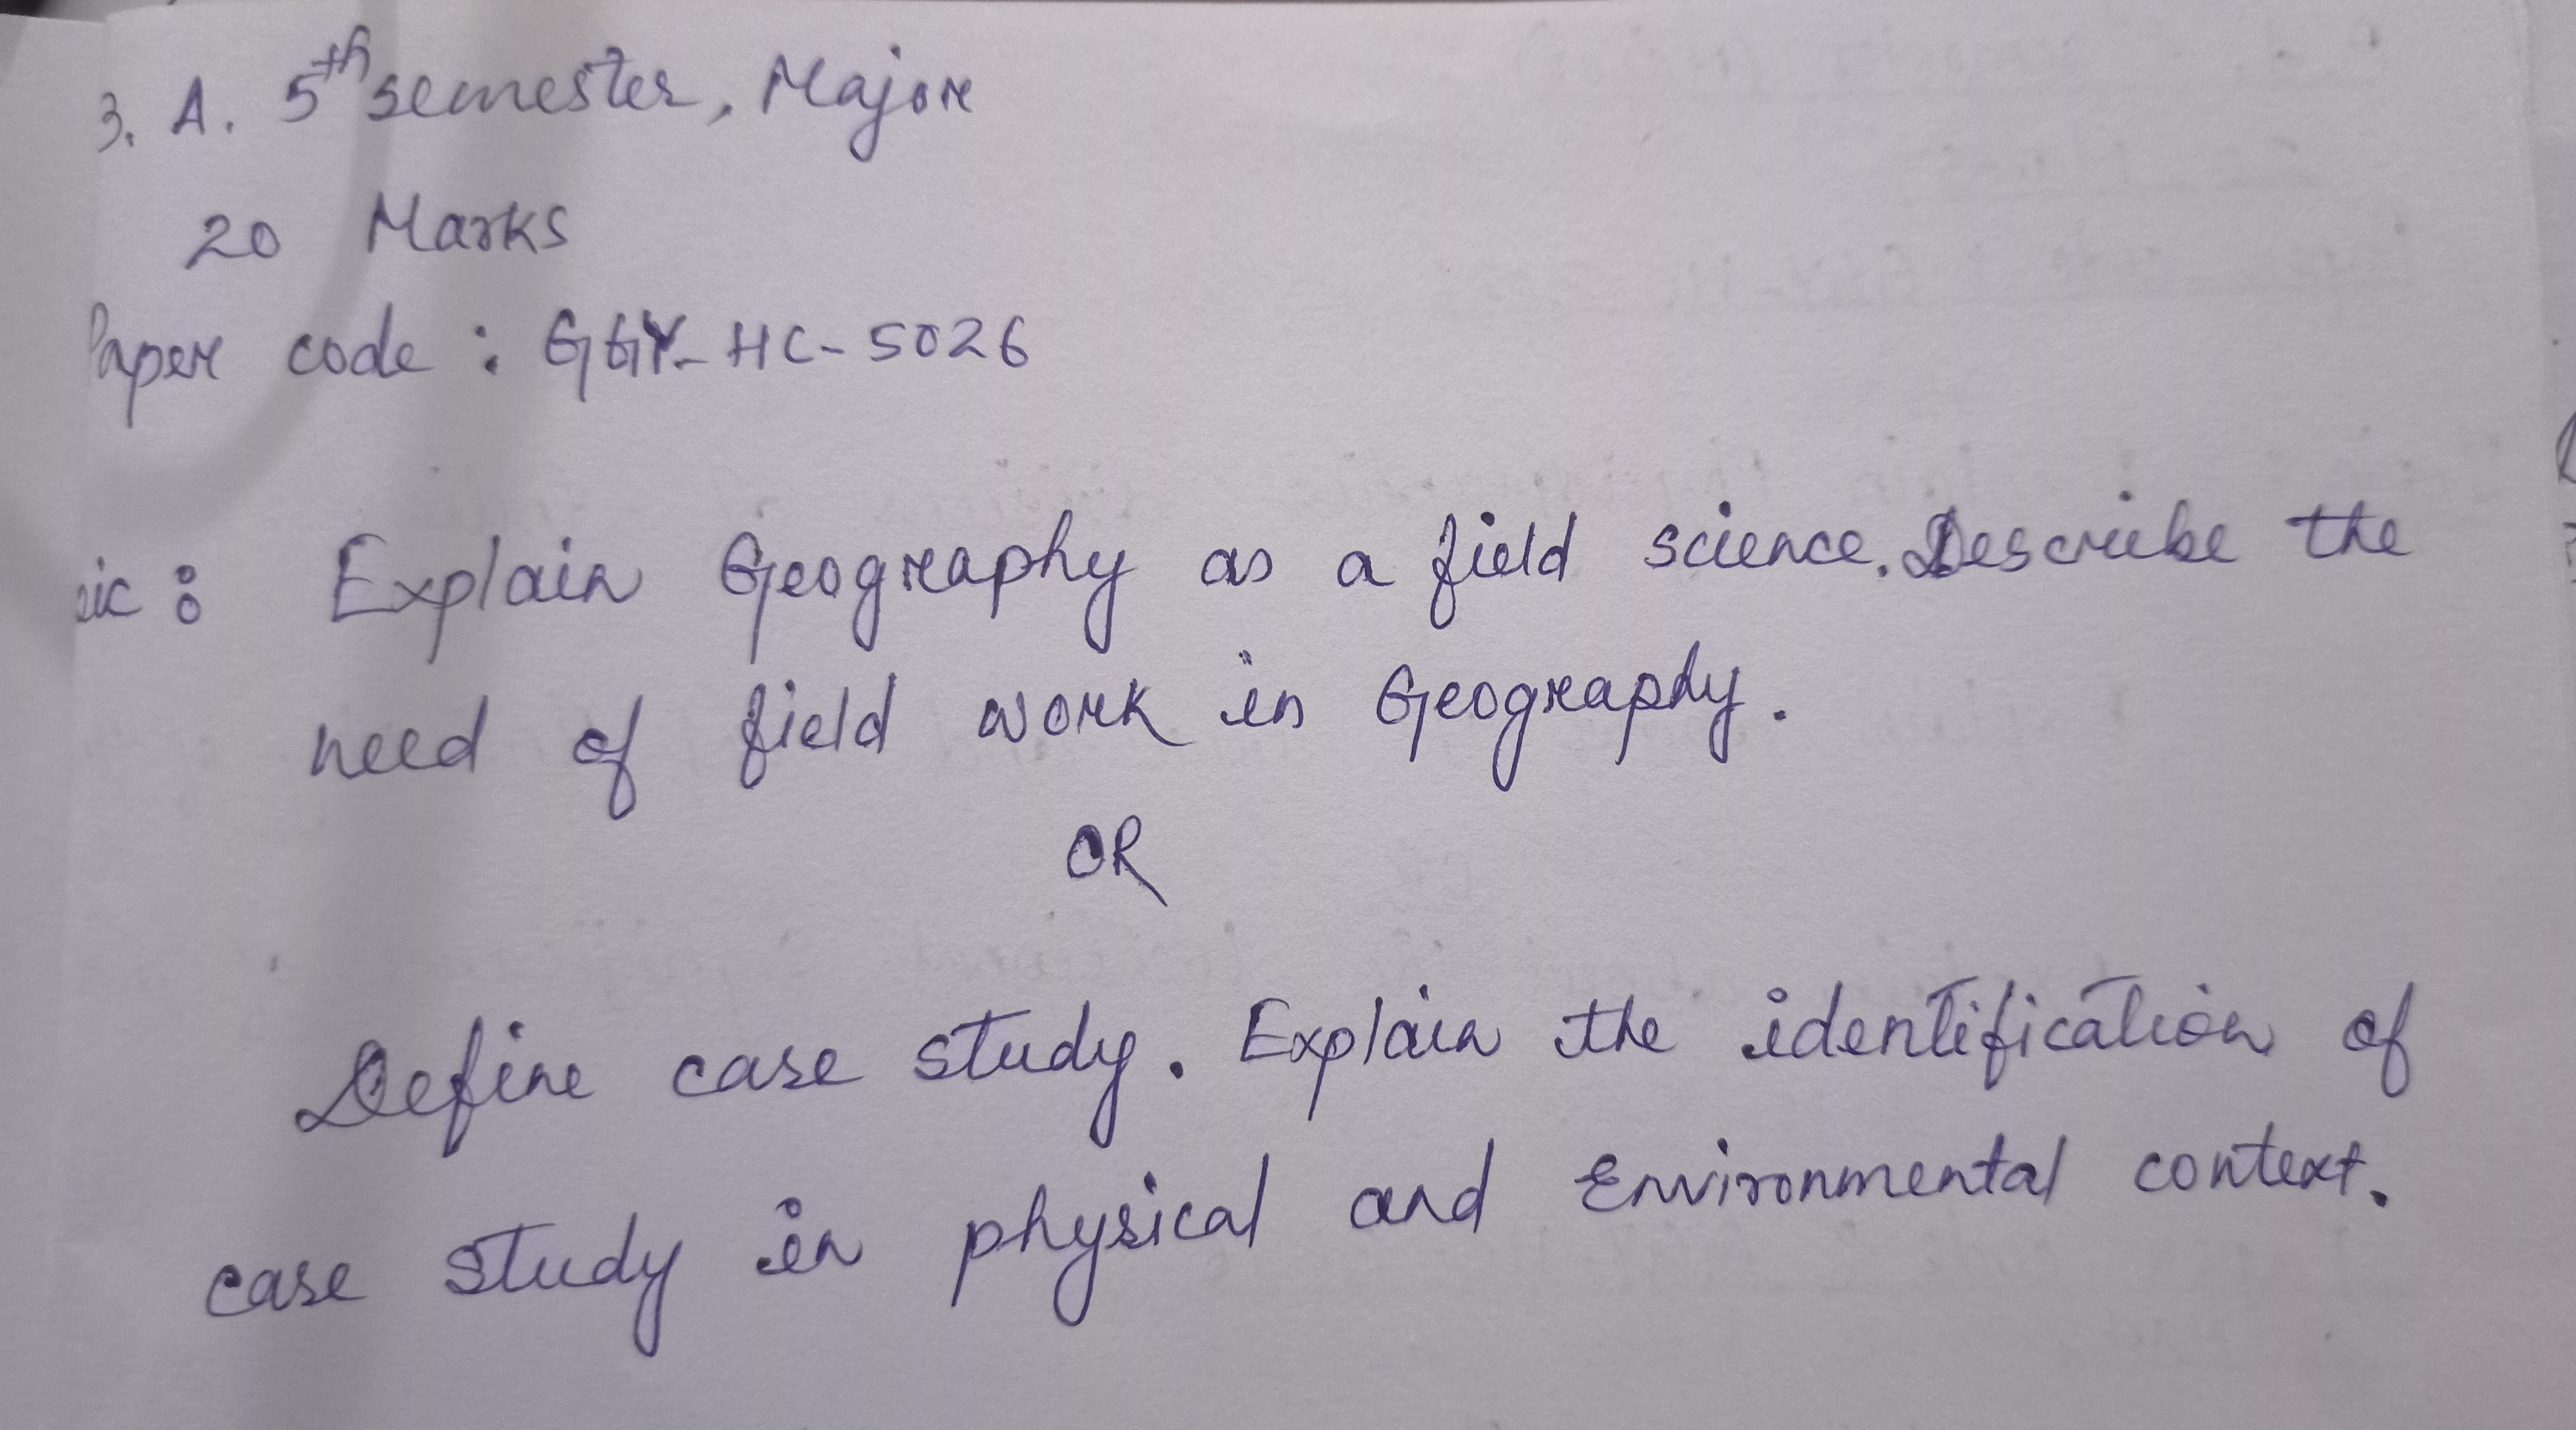 3. A. 5th semester, Major
20 Marks
Paper code : GGY-HC-5026
Explain Geography as a field science. Describe the
need of field work in Geography.
OR
Define case study. Explain the identification of
case study in physical and Environmental context.